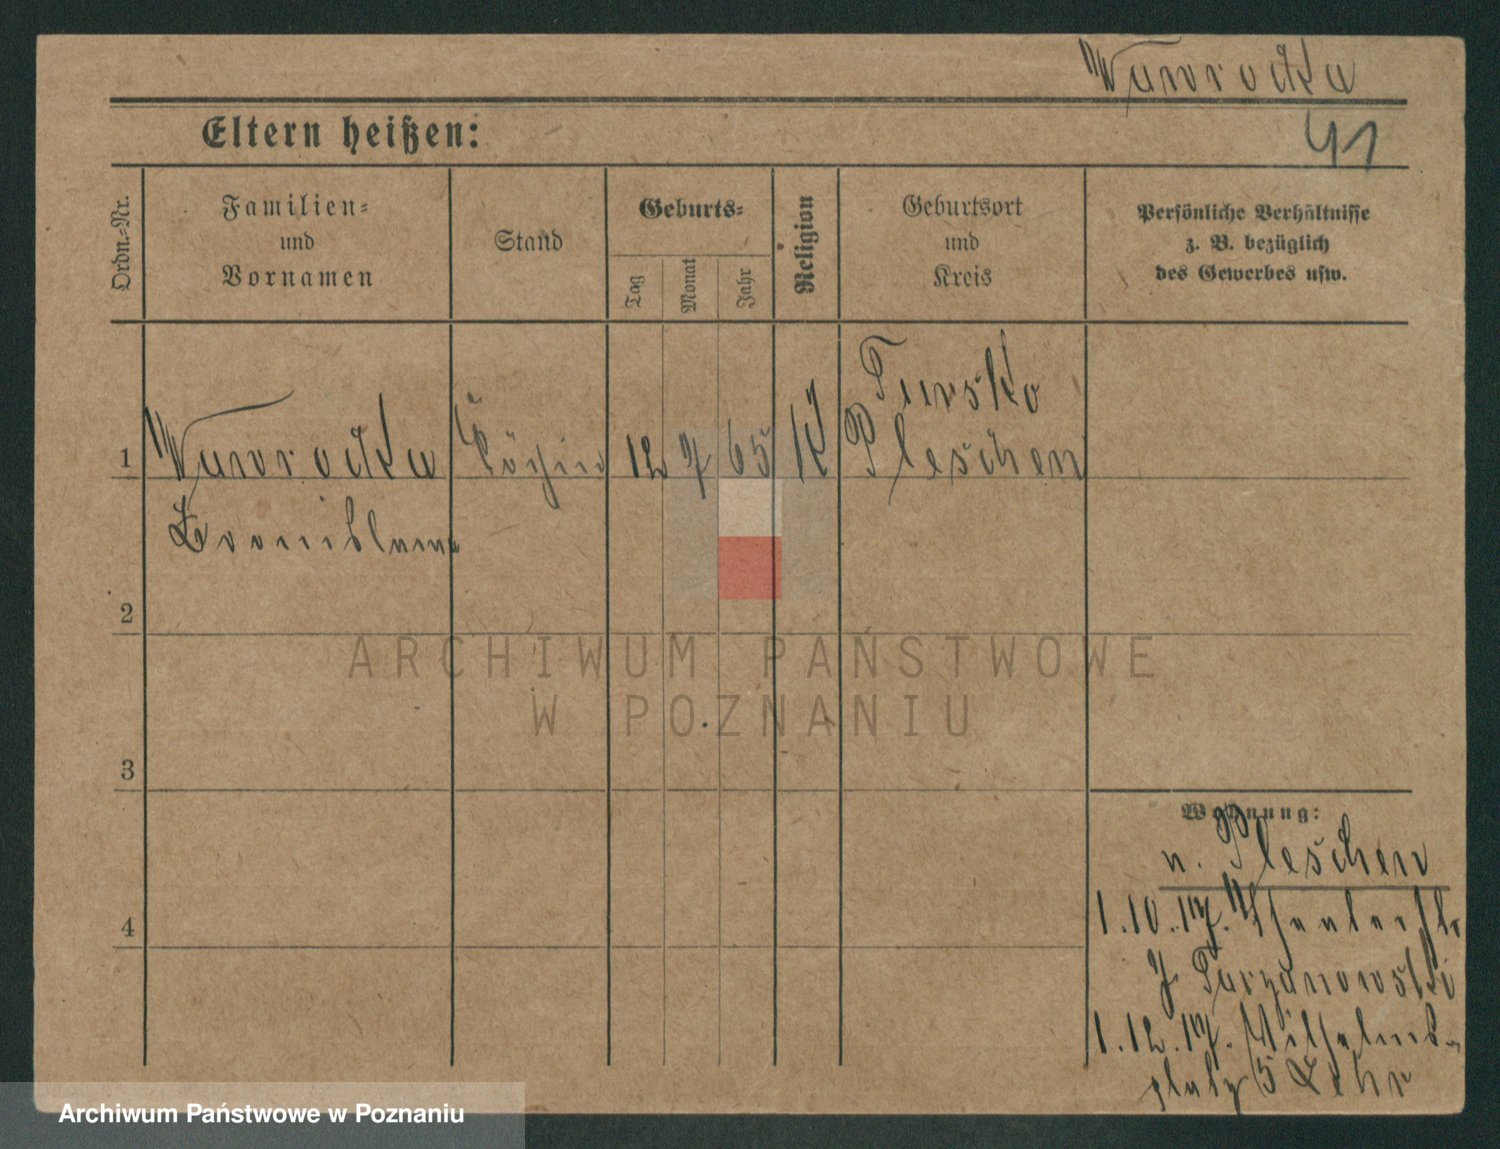 Wawrocka
Eltern heißen:
41
Ordn.-Nr.
Familien-
und
Vornamen
Stand
Geburts-
Tag
Monat
Jahr
Religion
Geburtsort
und
Kreis
Persönliche Verhältnisse
z. B. bezüglich
des Gewerbes usw.
Tursko
1 Wawrocka Köchin 12 7 65 K Pleschen
2
3
4
Wohnung:
n. Pleschen
1.10.17. Theaterstr
7
1.12.17. Wilhelms-
platz 5
ARCHIWUM PAŃSTWOWE
W POZNANIU
Archiwum Państwowe w Poznaniu